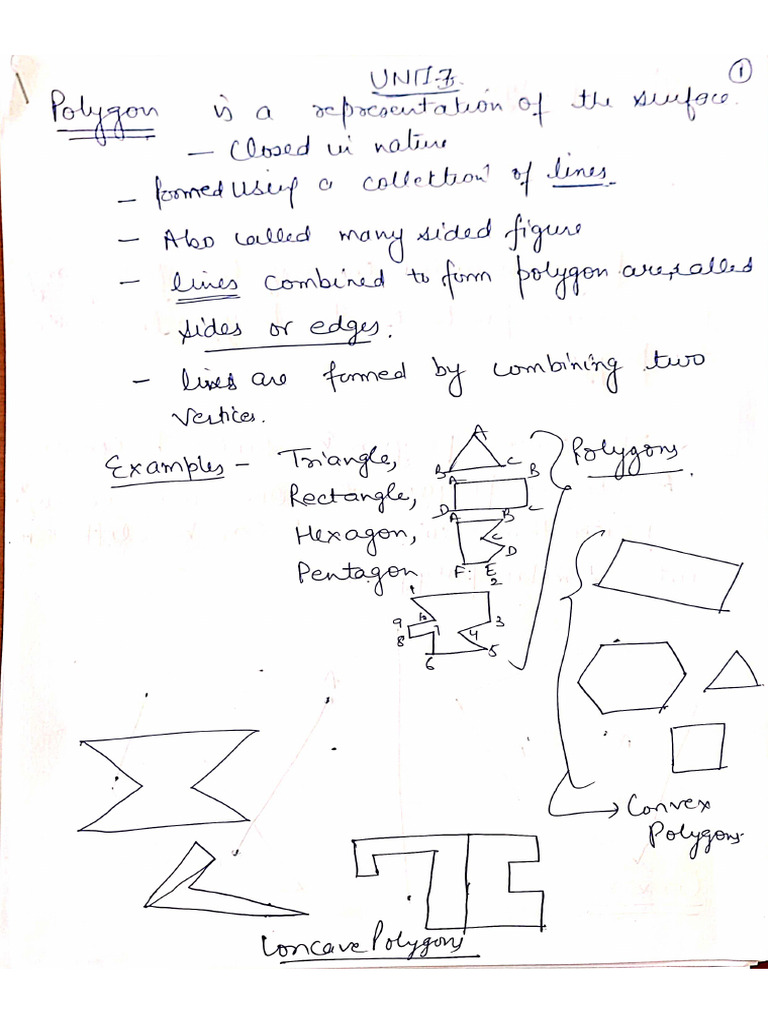 UNIT-3.
1
Polygon is a representation of the surface.
- Closed in nature
- formed using a collection of lines.
- Also called many sided figure
- lines combined to form polygon are called
sides or edges.
- lines are formed by combining two
vertices.
Examples - Triangle,
Rectangle,
Hexagon,
Pentagon
A
B C
A B
D C
A B
C
D
F. E
1 2
3
4
5
6
7
8
9
10
Polygons
Convex
Polygons
Concave Polygons